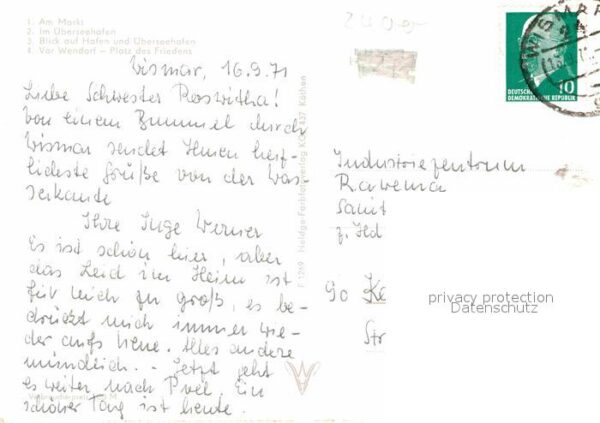 1. Am Markt
2. Im Überseehafen
3. Blick auf Hafen und Überseehafen
4. Vor Wendorf — Platz des Friedens
Wismar, 16.9.71
Liebe Schwester Roswitha!
Von einem Bummel durch
Wismar sendet Ihnen herz-
lichste Grüße von der Was-
serkante
Ihre Inge Werner
Es ist schön hier, aber
das Leid im Heim ist
für mich zu groß, es be-
drückt mich immer wie-
der aufs neue. Alles andere
mündlich. - Jetzt geht
es weiter nach Poel. Ein
schöner Tag ist heute.
Verbraucherpreis M
Heldge-Farbfoto Köthen
F 1269
WISMAR
DEUTSCHE
DEMOKRATISCHE REPUBLIK
10
Industriezentrum
Rawema
Sanit
z. Hd
90
Str
privacy protection
Datenschutz